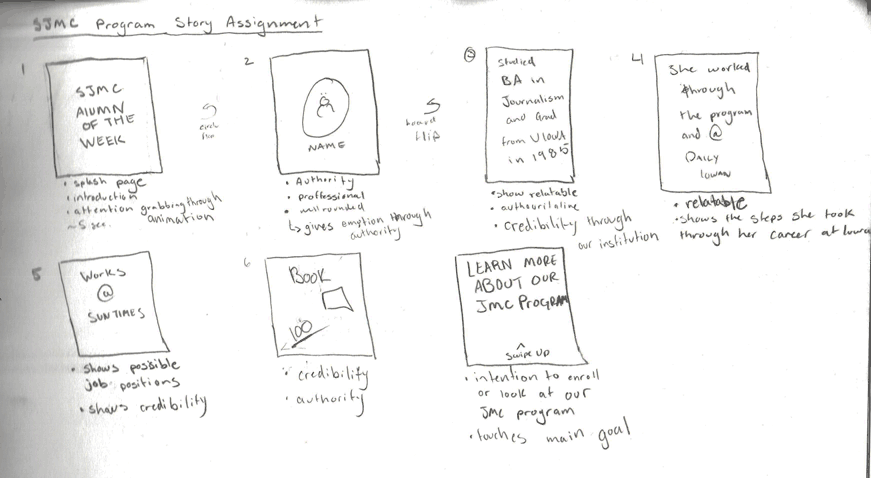 SJMC Program Story Assignment
1
SJMC
AlUMN
OF THE
WEEK
• splash page
• introduction
• attention grabbing through
animation
~5 sec.
2
NAME
• Authority
• proffessional
• well rounded
↳ gives emotion through
authority
board
flip
3
Studied
BA in
Journalism
and Grad
from UIowa
in 1985
• show relatable
• credibility through
our institution
4
She worked
through
the program
and @
DAILY
IOWAN
• relatable
• shows the steps she took
through her career at Iowa
5
Works
@
SUNTIMES
• shows possible
job positions
• shows credibility
6
BOOK
100
• credibility
• authority
LEARN MORE
ABOUT OUR
JMC PROGRAM
^
SWIPE UP
• intention to enroll
or look at our
JMC program
• touches main goal